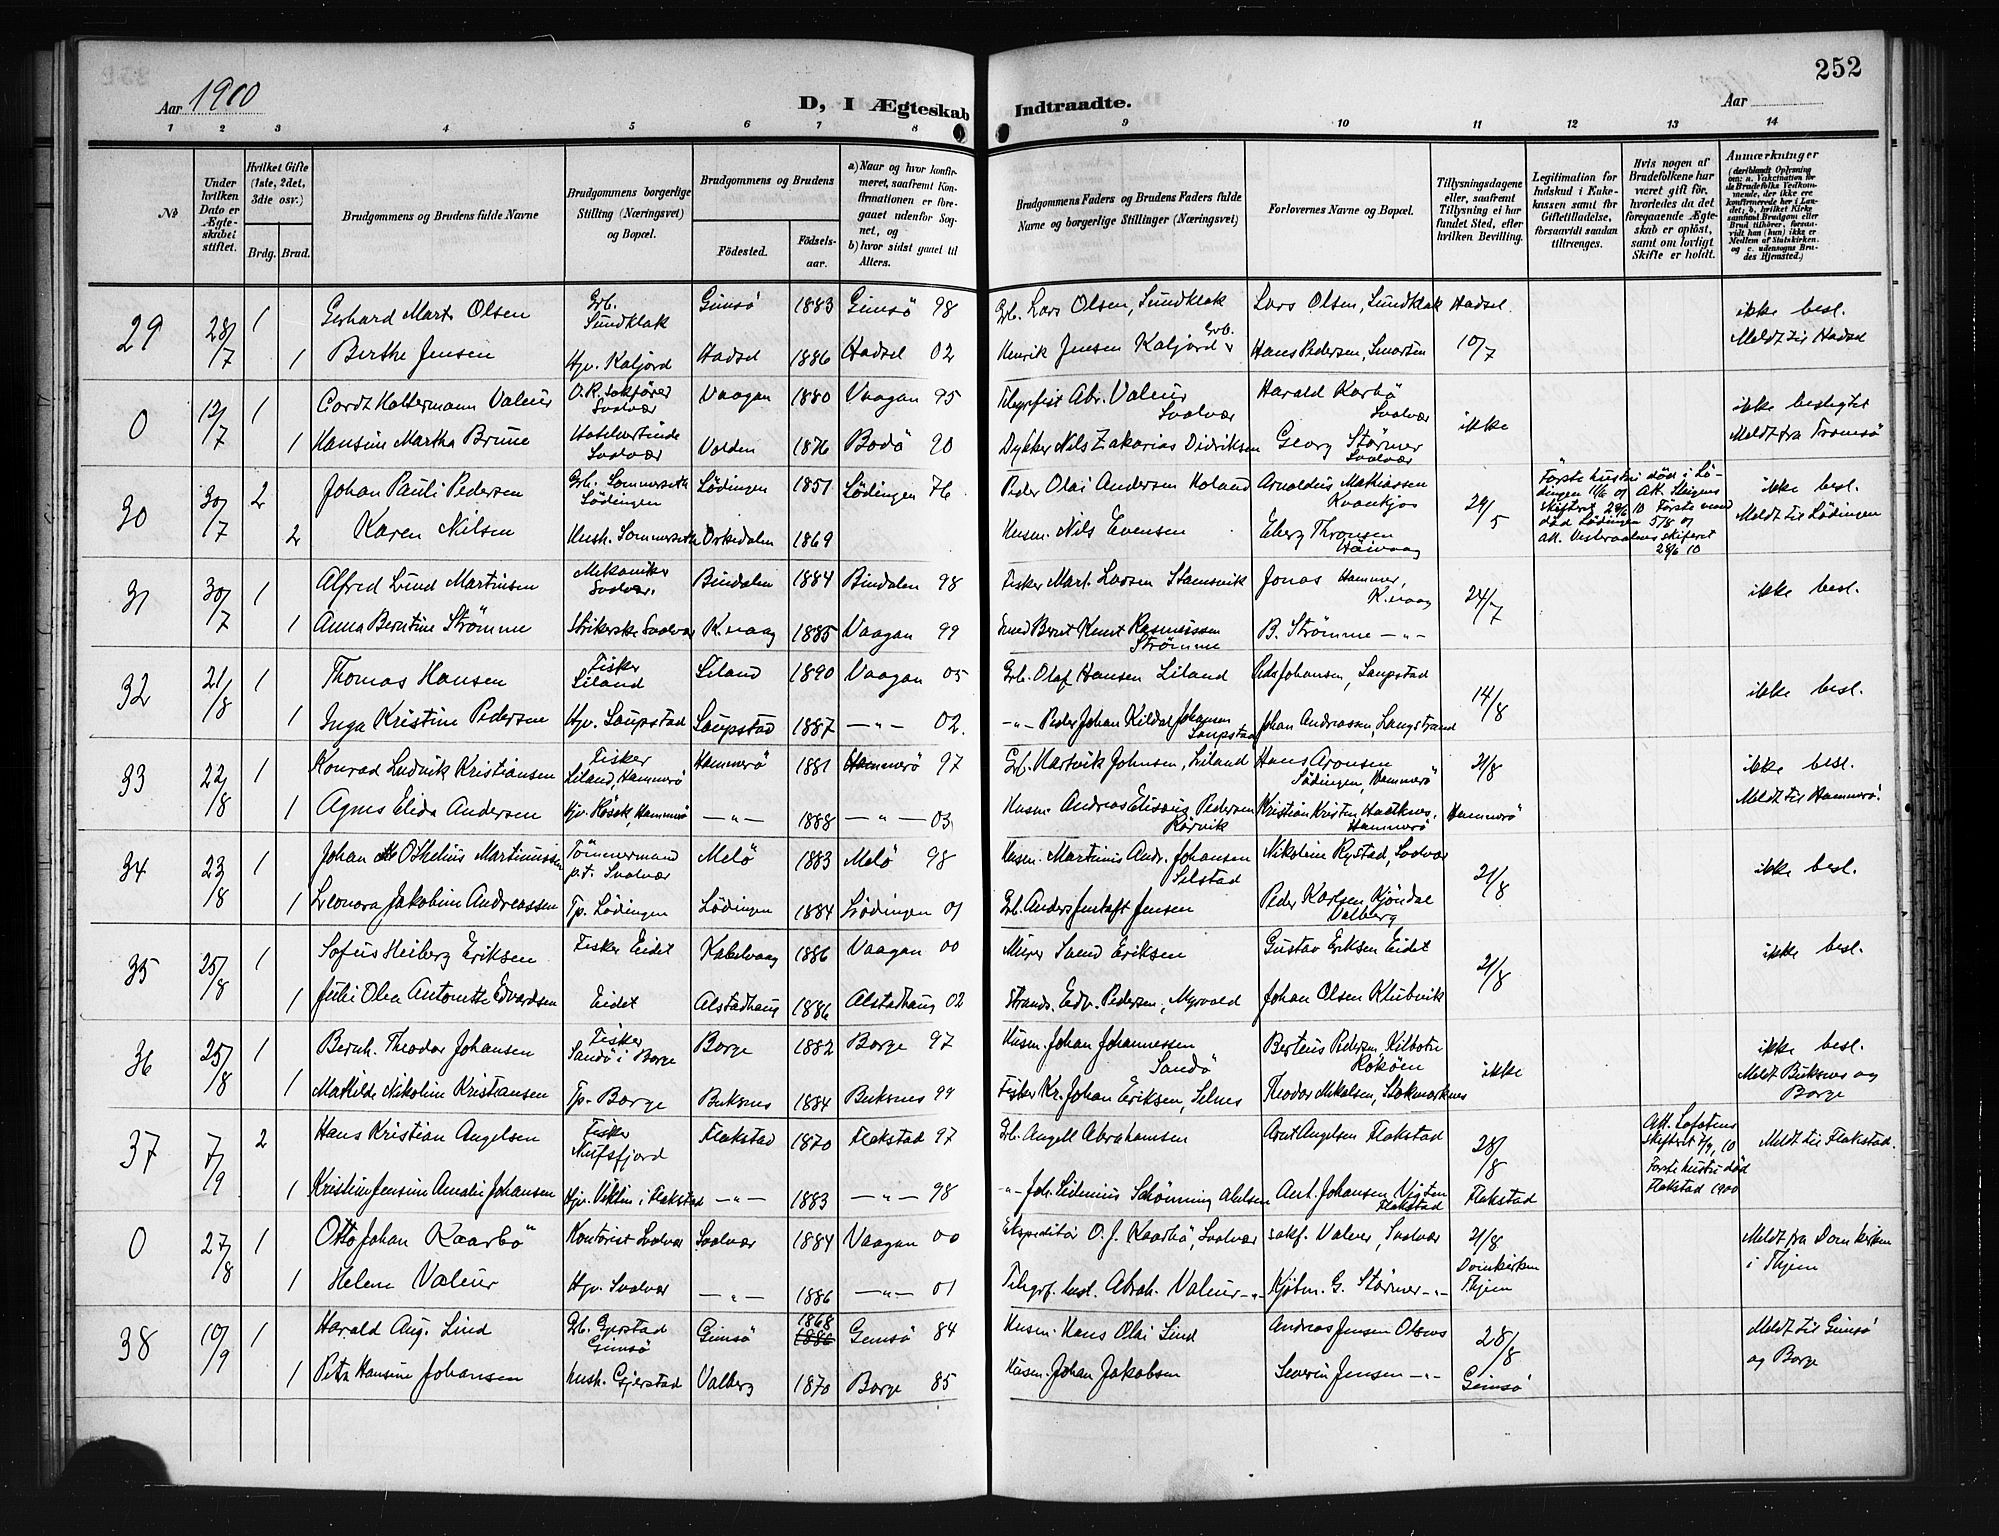 252
Aar 1910
D, I Ægteskab Indtraadte.
Aar
1 2 3 4 5 6 7 8 9 10 11 12 13 14
No
Under hvilken Dato er Ægteskabet stiftet.
Hvilket Gifte (1ste, 2det, 3die osv.)
Brdg. Brud.
Brudgommens og Brudens fulde Navne
Brudgommens borgerlige Stilling (Næringsvei) og Bopæl.
Brudgommens og Brudens
Födested.
Födselsaar.
a) Naar og hvor konfirmeret, saafremt Konfirmationen er foregaaet udenfor Sognet, og
b) hvor sidst gaaet til Alters.
Brudgommens Faders og Brudens Faders fulde Navne og borgerlige Stillinger (Næringsvei)
Forlovernes Navne og Bopæl.
Tillysningsdagene eller, saafremt Tillysning ei har fundet Sted, efter hvilken Bevilling.
Legitimation for Indskud i Enkekassen samt for Giftetilladelse, forsaavidt saadan tiltrænges.
Hvis nogen af Brudefolkene har været gift för, hvorledes da det foregaaende Ægteskab er oplöst, samt om lovligt Skifte er holdt.
Anmærkninger
29 28/7 1 Gerhard Mart. Olsen Grb. Sundklak Gimsö 1883 Gimsö 98 Grb. Lars Olsen, Sundklak Lars Olsen, Sundklak Hadsel ikke besl.
1 Berthe Jensen Hjv. Kaljord Hadsel 1886 Hadsel 02 Henrik Jensen Kaljord Grb. Hans Pedersen, Smorten 10/7 Meldt til Hadsel
0 12/7 1 Cordt Holtermann Valeur O.R. Sakförer Svolvær Vaagan 1880 Vaagan 95 Telegrfist Abr. Valeur Svolvær Harald Karbö Svolvær ikke ikke beslegtet
1 Hansine Martha Brune Hotelvertinde Svolvær Volden 1876 Bodö 90 Dykker Nils Zakarias Didriksen Georg Störmer Svolvær Meldt fra Tromsö
30 30/7 2 Johan Pauli Pedersen Grb. Sommerseth Lödingen Lödingen 1851 Lödingen 76 Peder Olai Andersen Holand Arnoldus Mathiassen 29/5 ikke besl.
2 Karen Nilsen Hush. Sommerseth Orkedalen 1869 Husm. Nils Evensen Eberg Thronsen Meldt til Lödingen
Förste hustru död i Lödingen
Förste mand död Lödingen 5/8 07
Att. Vesteraalens skifteret 28/6 10
31 30/7 1 Alfred Lund Martinsen Mekaniker Svolvær. Bindalen 1884 Bindalen 98 Fisker Mart. Larsen Stamsvik Jonas Hammer, K.vaag 24/7 ikke besl.
1 Anna Berntine Strömme Strikerske Svolvær K.vaag 1885 Vaagan 99 Smed Bernt Knut Rasmussen Strömme B. Strömme -"-
32 21/8 1 Thomas Hansen Fisker Liland Liland 1890 Vaagan 05 Grb. Olaf Hansen Liland Peds Johansen, Laupstad 14/8 ikke besl.
1 Inga Kristine Pedersen Hjv. Laupstad Laupstad 1887 -"- 02. -"- Peder Johan Kildal Johansen Laupstad Johan Andreassen, Langstrand
33 22/8 1 Konrad Ludvik Kristiansen Fisker Liland, Hammerö Hammerö 1881 Hammerö 97 Grb. Hartvik Johnsen, Liland Hans Aronsen Lödingen, Hammerö 21/8 ikke besl.
1 Agnes Elida Andersen Hjv. Rösok, Hammerö -"- 1888 -"- 03 Husm. Andreas Elisæus Pedersen Rörvik Kristian Kristen Haatknes, Hammerö Hammerö Meldt til Hammerö.
34 23/8 1 Johan Othelius Martinussen Tömmermand p.t. Svolvær Melö 1883 Melö 98 Husm. Martinus Andr. Johansen Selstad Nikoline Rystad, Svolvær 21/8 ikke besl.
1 Leonora Jakobine Andreassen Tp. Lödingen Lödingen 1884 Lödingen 01 Grb. Anders Gustaft Jensen Peder Karlsen Kjöndal Valberg
35 25/8 1 Sofus Heiberg Eriksen Fisker Eidet Kabelvaag 1886 Vaagan 00 Murer Svend Eriksen Gustav Eriksen Eidet 21/8 ikke besl.
1 Juli Olea Antonette Edvardsen Eidet Alstadhaug 1886 Alstadhaug 02 Strands. Edv. Pedersen, Myrvold Johan Olsen Klubvik
36 25/8 1 Bernh. Theodor Johansen Fisker Sandö i Borge Borge 1882 Borge 97 Husm. Johan Johannessen Sandö Berteus Pedersen Kilbotn ikke ikke besl.
1 Mathilde Nikoline Kristiansen Tp. Borge Buksnes 1884 Buksnes 99 Fisker Kr. Johan Eriksen, Selnes Theodor Mikalsen, Stokmarknes Meldt Buksnes og Borge
37 7/9 2 Hans Kristian Angelsen Fisker Nufsfjord Flakstad 1870 Flakstad 97 Grb. Angell Abrahamsen Arnt Angelsen Flakstad 28/8 Att. Lofotens skifteret 7/9, 10 Meldt til Flakstad.
1 Kristine Jensine Amalie Johansen Hjv. Vikten i Flakstad -"- 1883 -"- 98 -"- Joh. Sidenius Schönning Ant. Johansen Vigten Flakstad Flakstad Förste hustru död Flakstad 1900
0 27/8 1 Otto Johan Kaarbö Kontorist Svolvær Svolvær 1884 Vaagan 00 Ekspeditör O. J. Kaarbö, Svolvær sakf. Valeur, Svolvær 21/8 Meldt fra Domkirken i Thjem
1 Helene Valeur Hjv. Svolvær -"- 1886 -"- 01 Telegrf. best. Abrah. Valeur -"- Kjöbm. G. Störmer -"- Domkirken Thjem
38 10/9 1 Harald Aug. Lind Grb. Gjerstad Gimsö Gimsö 1868 1886 Gimsö 84 Husm. Hans Olai Lind Andreas Jensen Olsnes 28/8 Meldt til Gimsö og Borge
1 Petra Hansine Johansen hush. Gjerstad Valberg 1870 Borge 85 Husm. Johan Jakobsen Severin Jensen -"- Gimsö